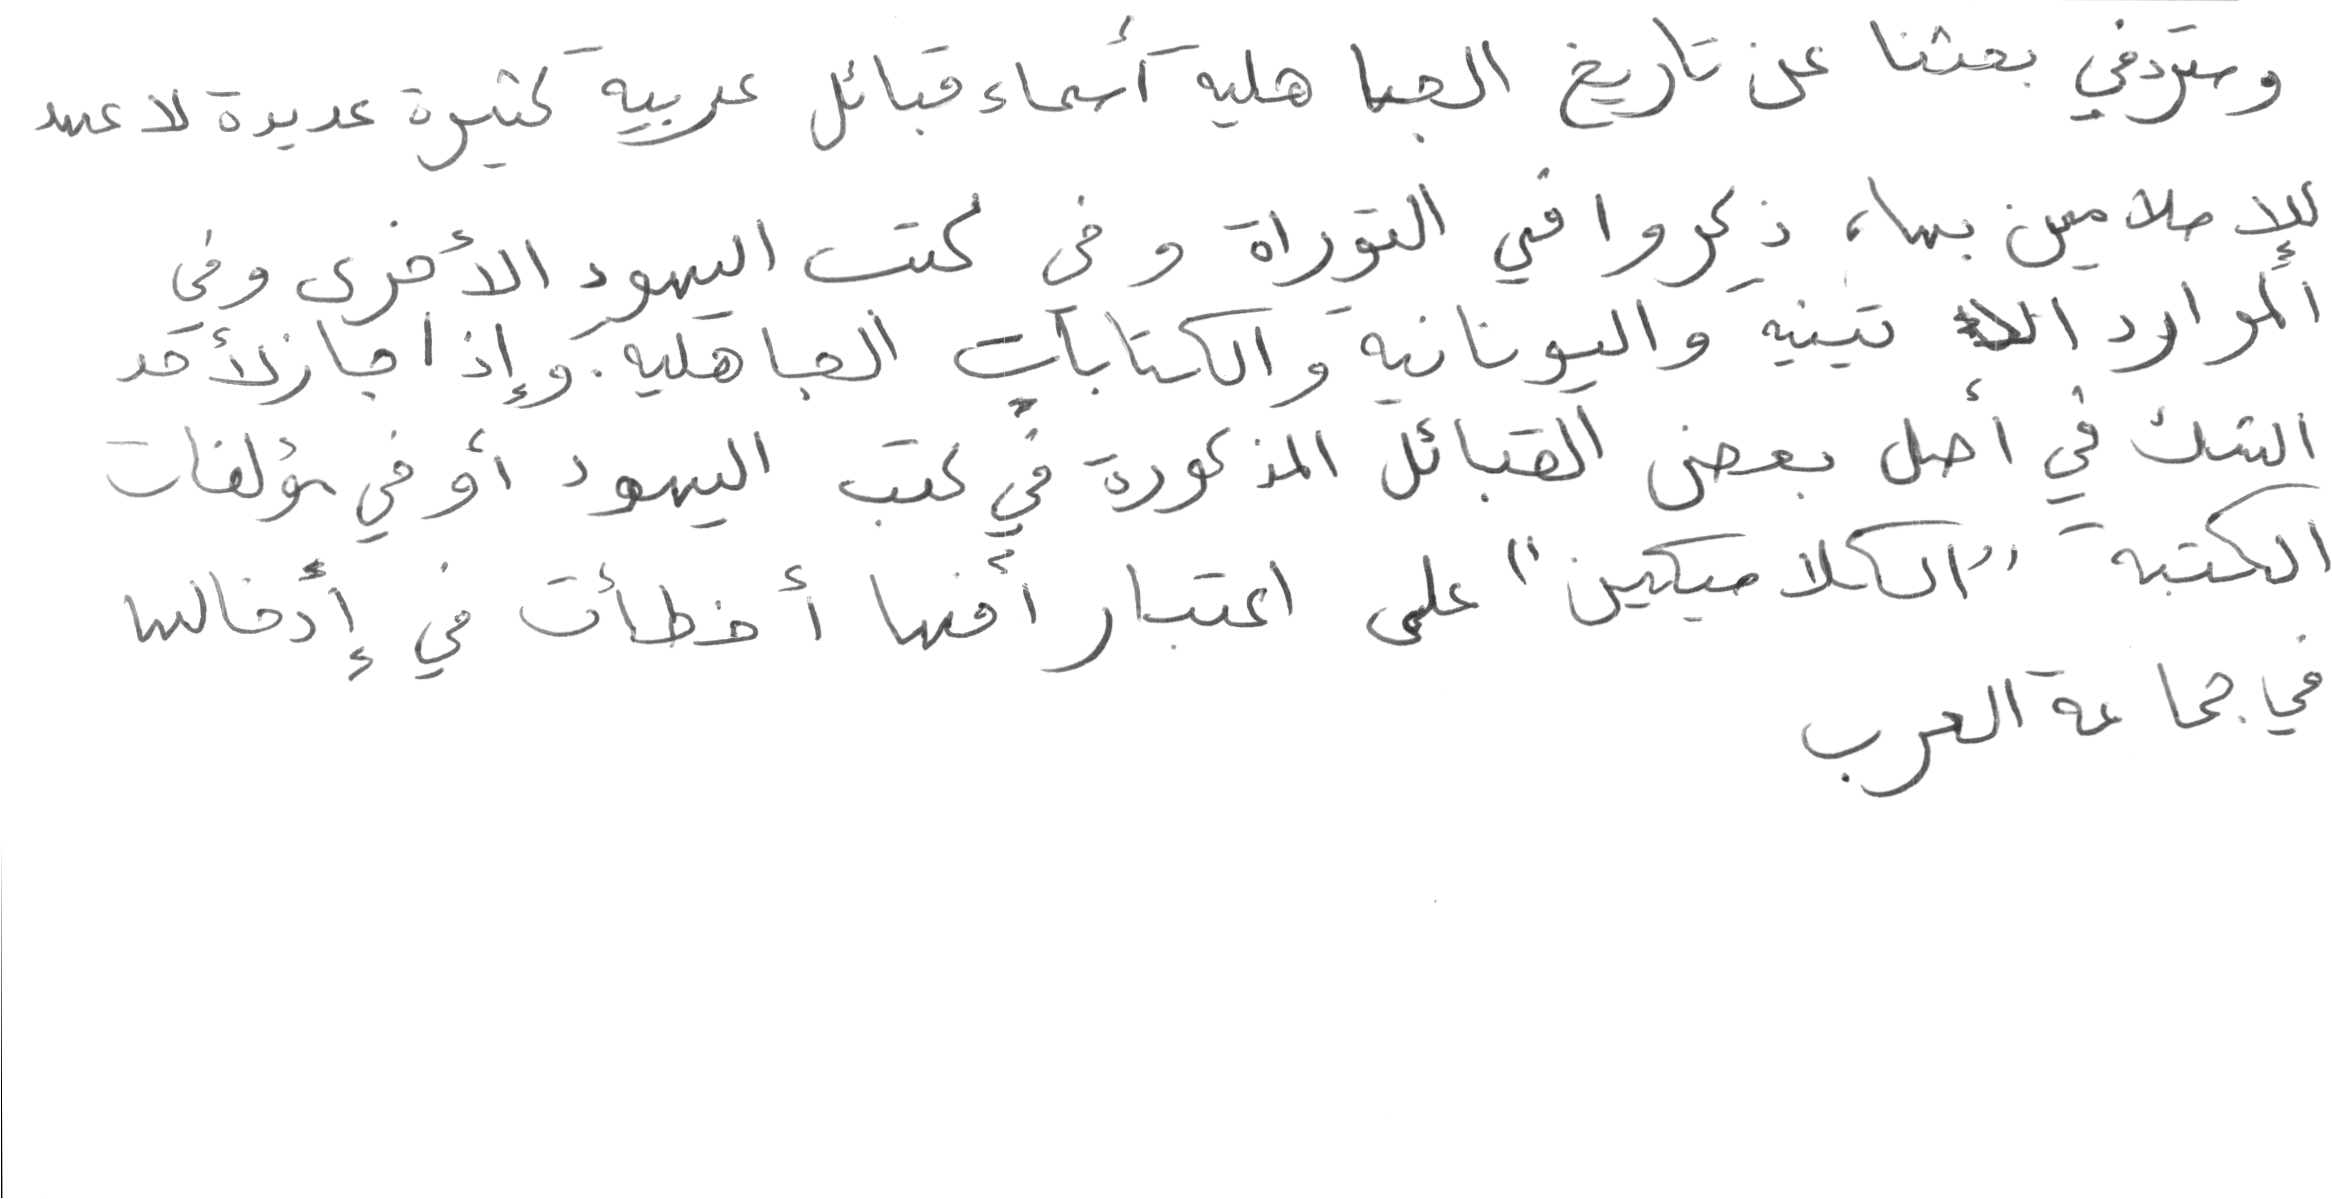 وسترد في بحثنا عن تاريخ الجاهلية أسماء قبائل عربية كثيرة عديدة لا عهد
للإسلاميين بها، ذكروا في التوراة وفى كتب اليهود الأخرى وفي
الموارد اللاتينية واليونانية والكتابات الجاهلية. وإذا جاز لأحد
الشك في أصل بعض القبائل المذكورة في كتب اليهود أو في مؤلفات
الكتبة "الكلاسيكين" على اعتبار أنها أخطأت في إدخالها
في جماعة العرب